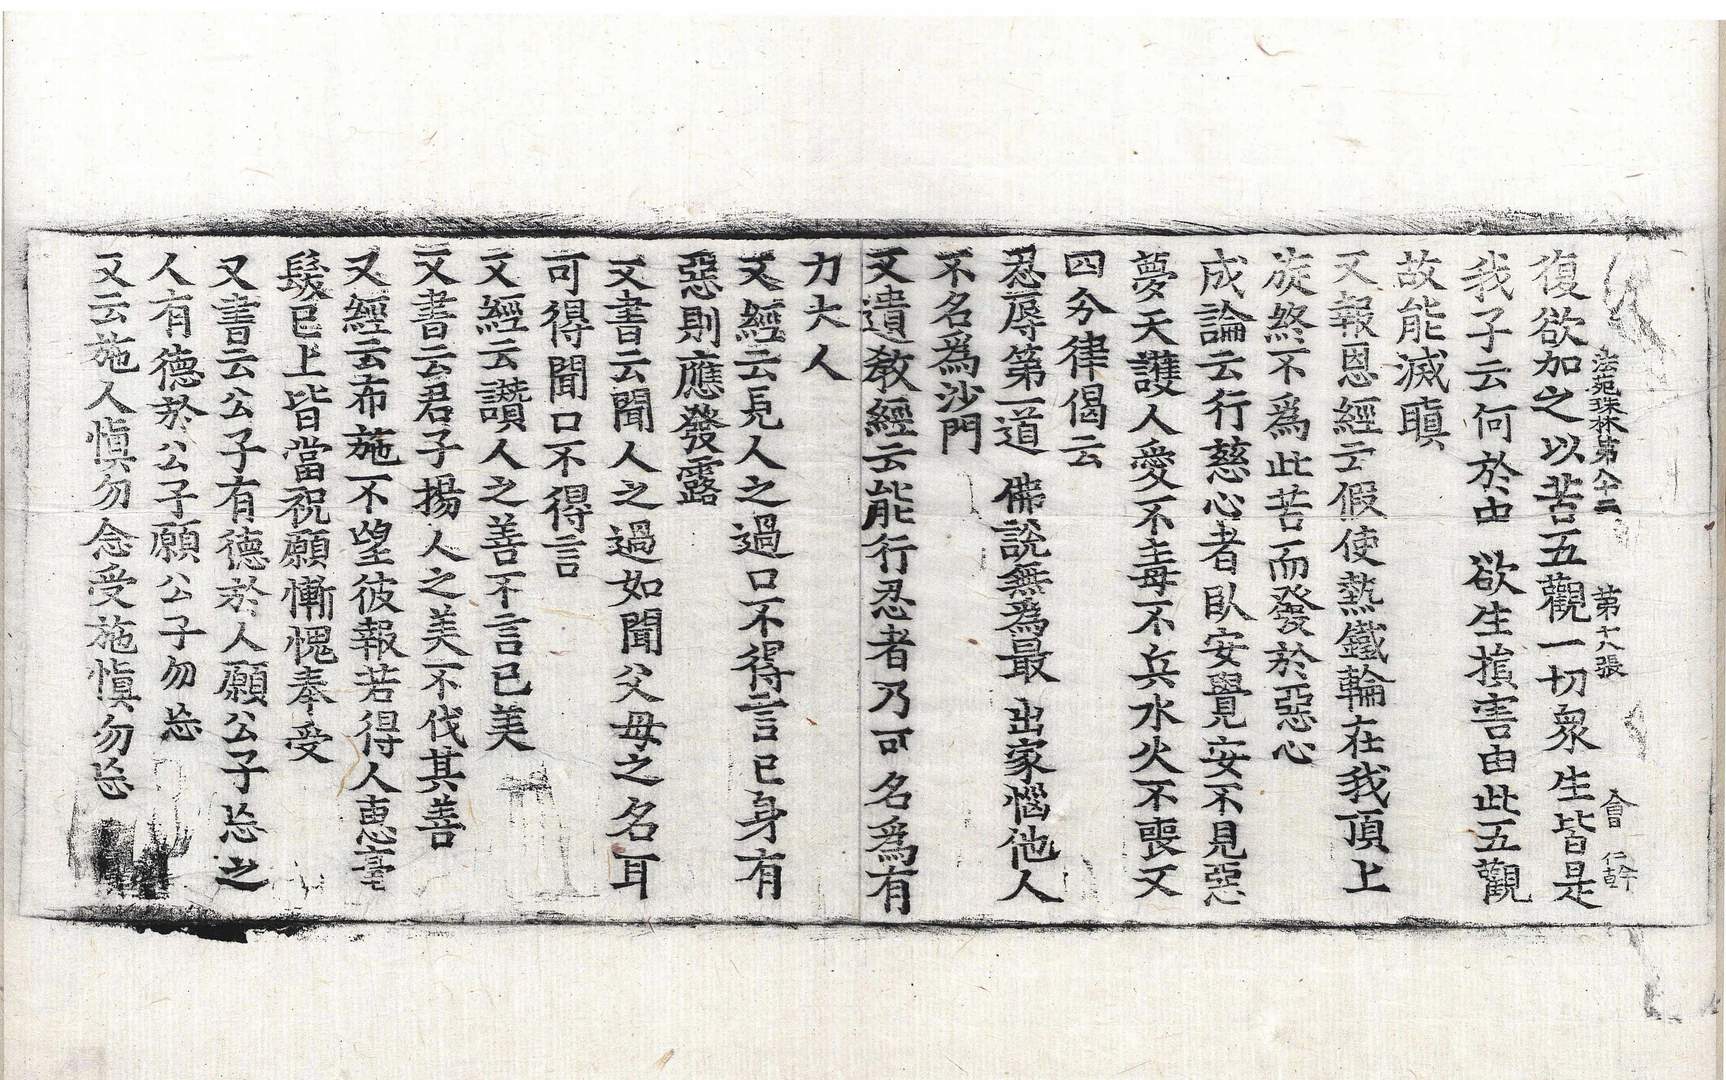 法苑珠林第八十二 第十八張 會 仁幹
復欲加之以苦五觀一切衆生皆是
我子云何於由 欲生損害由此五觀
故能滅瞋
又報恩經云假使熱鐵輪在我頂上
旋終不爲此苦而發於惡心
成論云行慈心者臥安覺安不見惡
夢天護人愛不毒不兵水火不喪又
四分律偈云
忍辱第一道 佛說無爲最 出家惱他人
不名爲沙門
又遺教經云能行忍者乃可名爲有
力大人
又經云見人之過口不得言己身有
惡則應發露
又書云聞人之過如聞父母之名耳
可得聞口不得言
又經云讚人之善不言己美
又書云君子揚人之美不伐其善
又經云布施不望彼報若得人惠毫
髮已上皆當祝願慚愧奉受
又書云公子有德於人願公子忘之
人有德於公子願公子勿忘
又云施人愼勿念受施愼勿忘